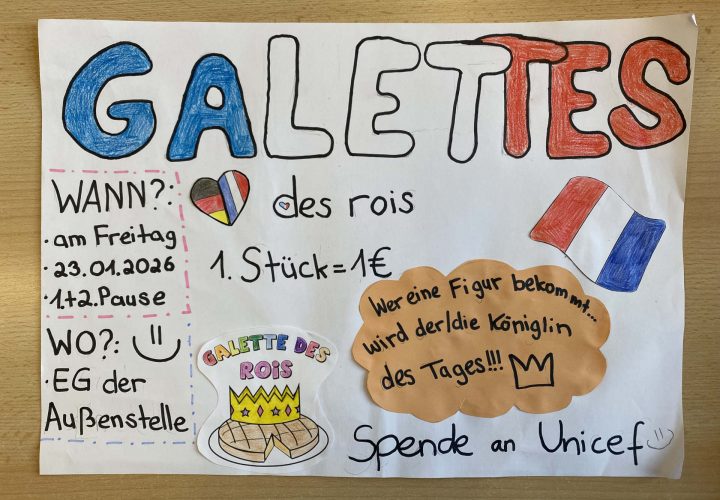 GALETTES
des rois
WANN?:
· am Freitag
· 23.01.2026
· 1.+2.Pause
WO?:
· EG der
Außenstelle
1. Stück = 1€
GALETTE DES
ROIS
Wer eine Figur bekommt...
wird der/die Königlin
des Tages!!!
Spende an Unicef